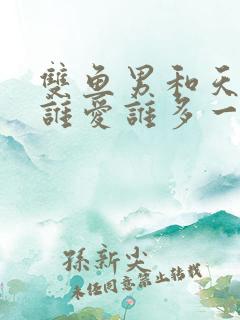 雙鱼男和天
誰愛誰多一
孫新尖
未经同意禁止转载